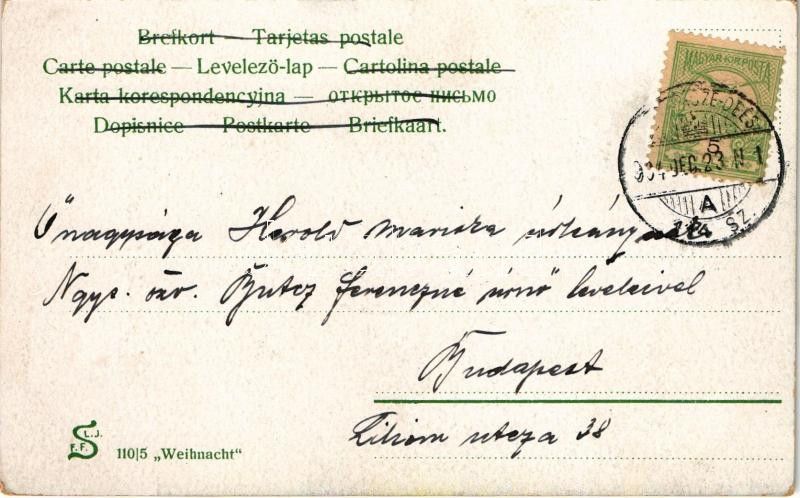 Brefkort — Tarjetas postale
Carte postale — Levelezö-lap — Cartolina postale
Karta korespondencyjna — открытое письмо
Dopisnice Postkarte Briefkaart.
MAGYAR KIR. POSTA
904 DEC. 23 N 1
A
SZ.
Őnagysága Herold Mariska úrleánynak
Ngys. özv. Butcz Ferenczné úrnő leveleivel
Budapest
Liliom utcza 38
L.J.
F.F.
110|5 „Weihnacht"